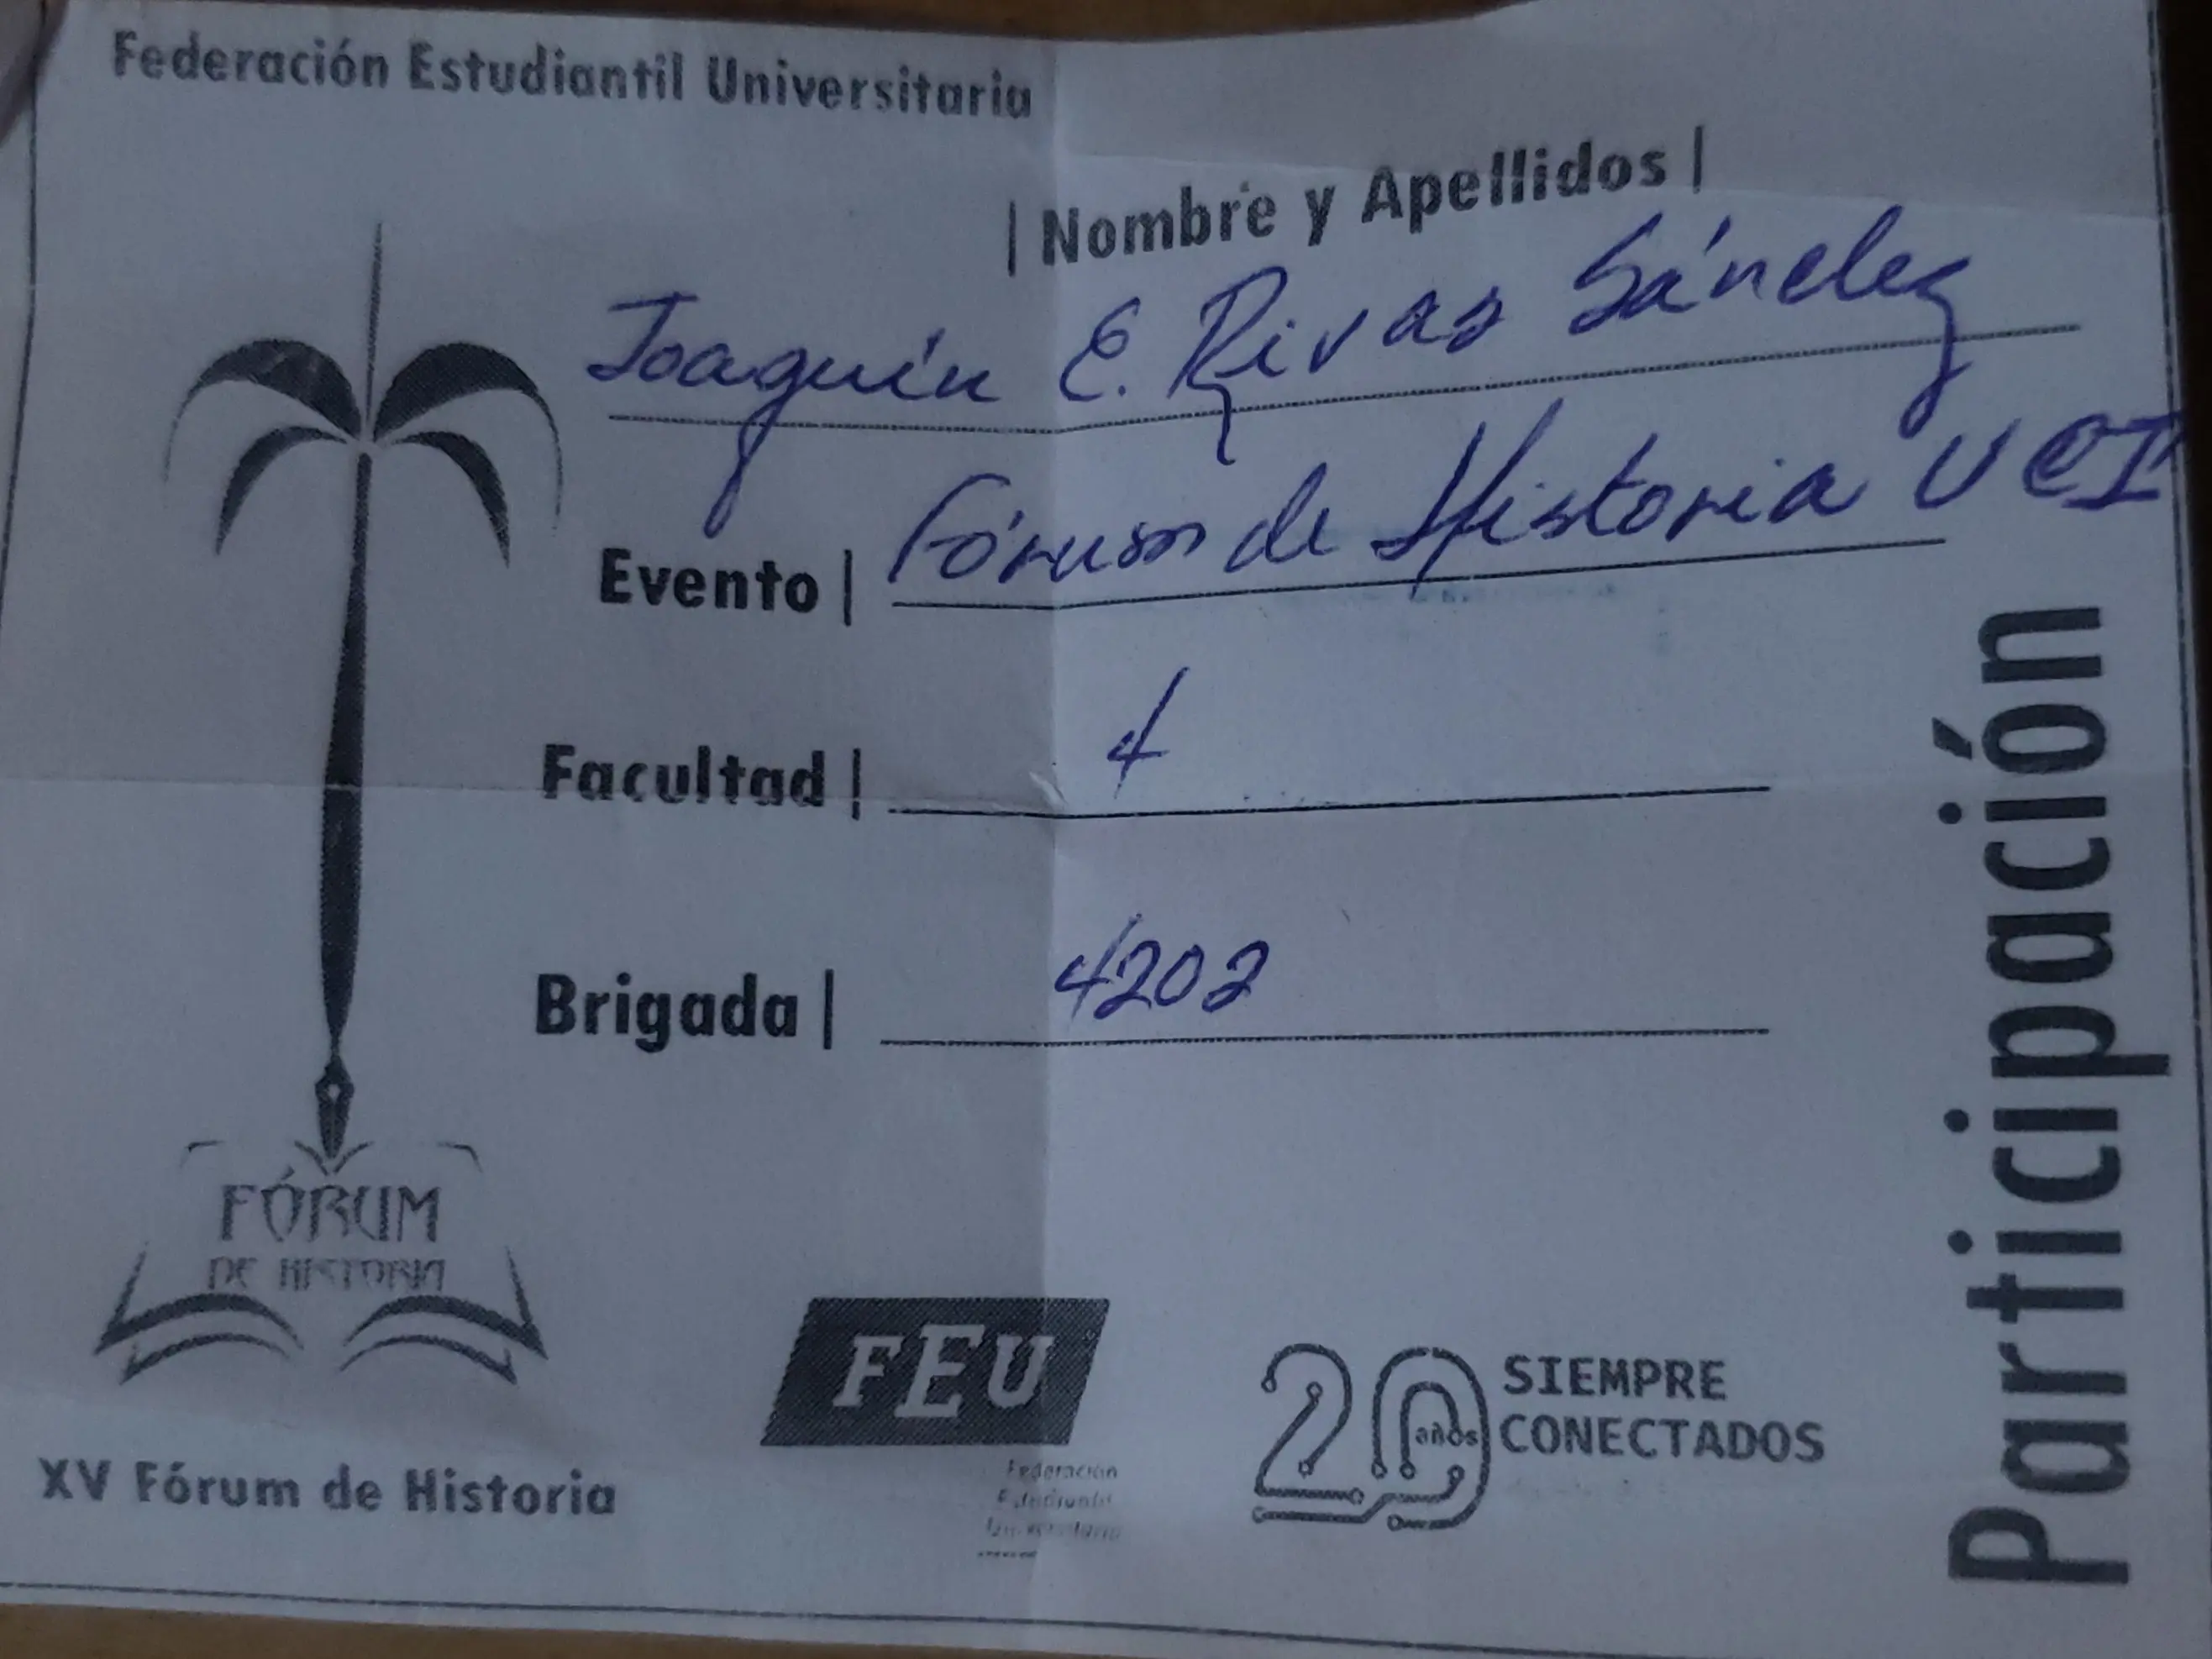 Federación Estudiantil Universitaria
| Nombre y Apellidos |
Joaquín E. Rivas Sánchez
Evento | Fórum de Historia UCI
Facultad | 4
Brigada | 4202
Participación
FÓRUM
DE HISTORIA
XV Fórum de Historia
FEU
Federación
Estudiantil
Universitaria
20 años
SIEMPRE
CONECTADOS